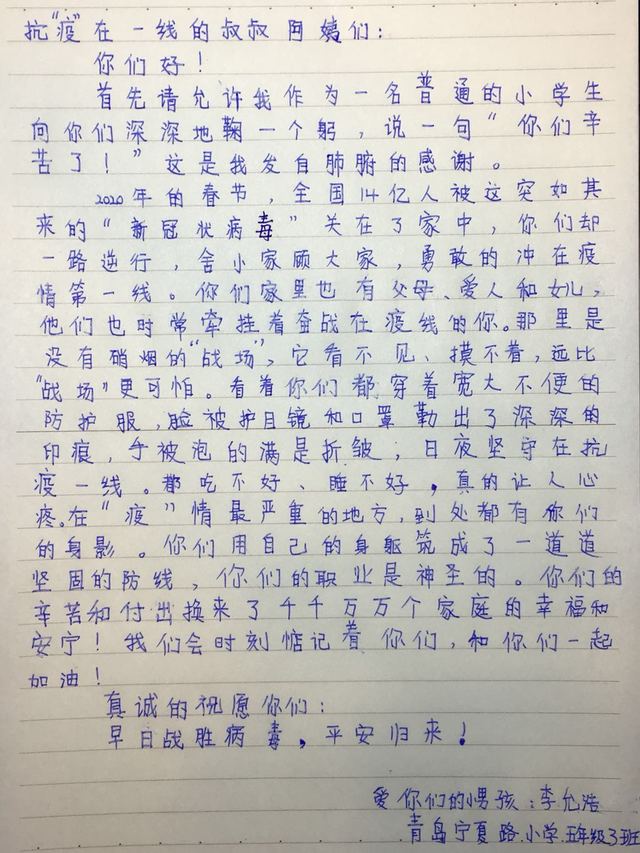 抗“疫”在一线的叔叔阿姨们：
你们好！
首先请允许我作为一名普通的小学生
向你们深深地鞠一个躬，说一句“你们辛
苦了！”这是我发自肺腑的感谢。
2020年的春节，全国14亿人被这突如其
来的“新冠状病毒”关在了家中，你们却
一路逆行，舍小家顾大家，勇敢的冲在疫
情第一线。你们家里也有父母、爱人和女儿，
他们也时常牵挂着奋战在疫线的你。那里是
没有硝烟的“战场”，它看不见、摸不着，远比
“战场”更可怕。看着你们都穿着宽大不便的
防护服，脸被护目镜和口罩勒出了深深的
印痕，手被泡的满是折皱；日夜坚守在抗
疫一线。都吃不好、睡不好，真的让人心
疼。在“疫”情最严重的地方，到处都有你们
的身影。你们用自己的身躯筑成了一道道
坚固的防线，你们的职业是神圣的。你们的
辛苦和付出换来了千千万万个家庭的幸福和
安宁！我们会时刻惦记着你们，和你们一起
加油！
真诚的祝愿你们：
早日战胜病毒，平安归来！
爱你们的男孩：李允浩
青岛宁夏路小学五年级3班